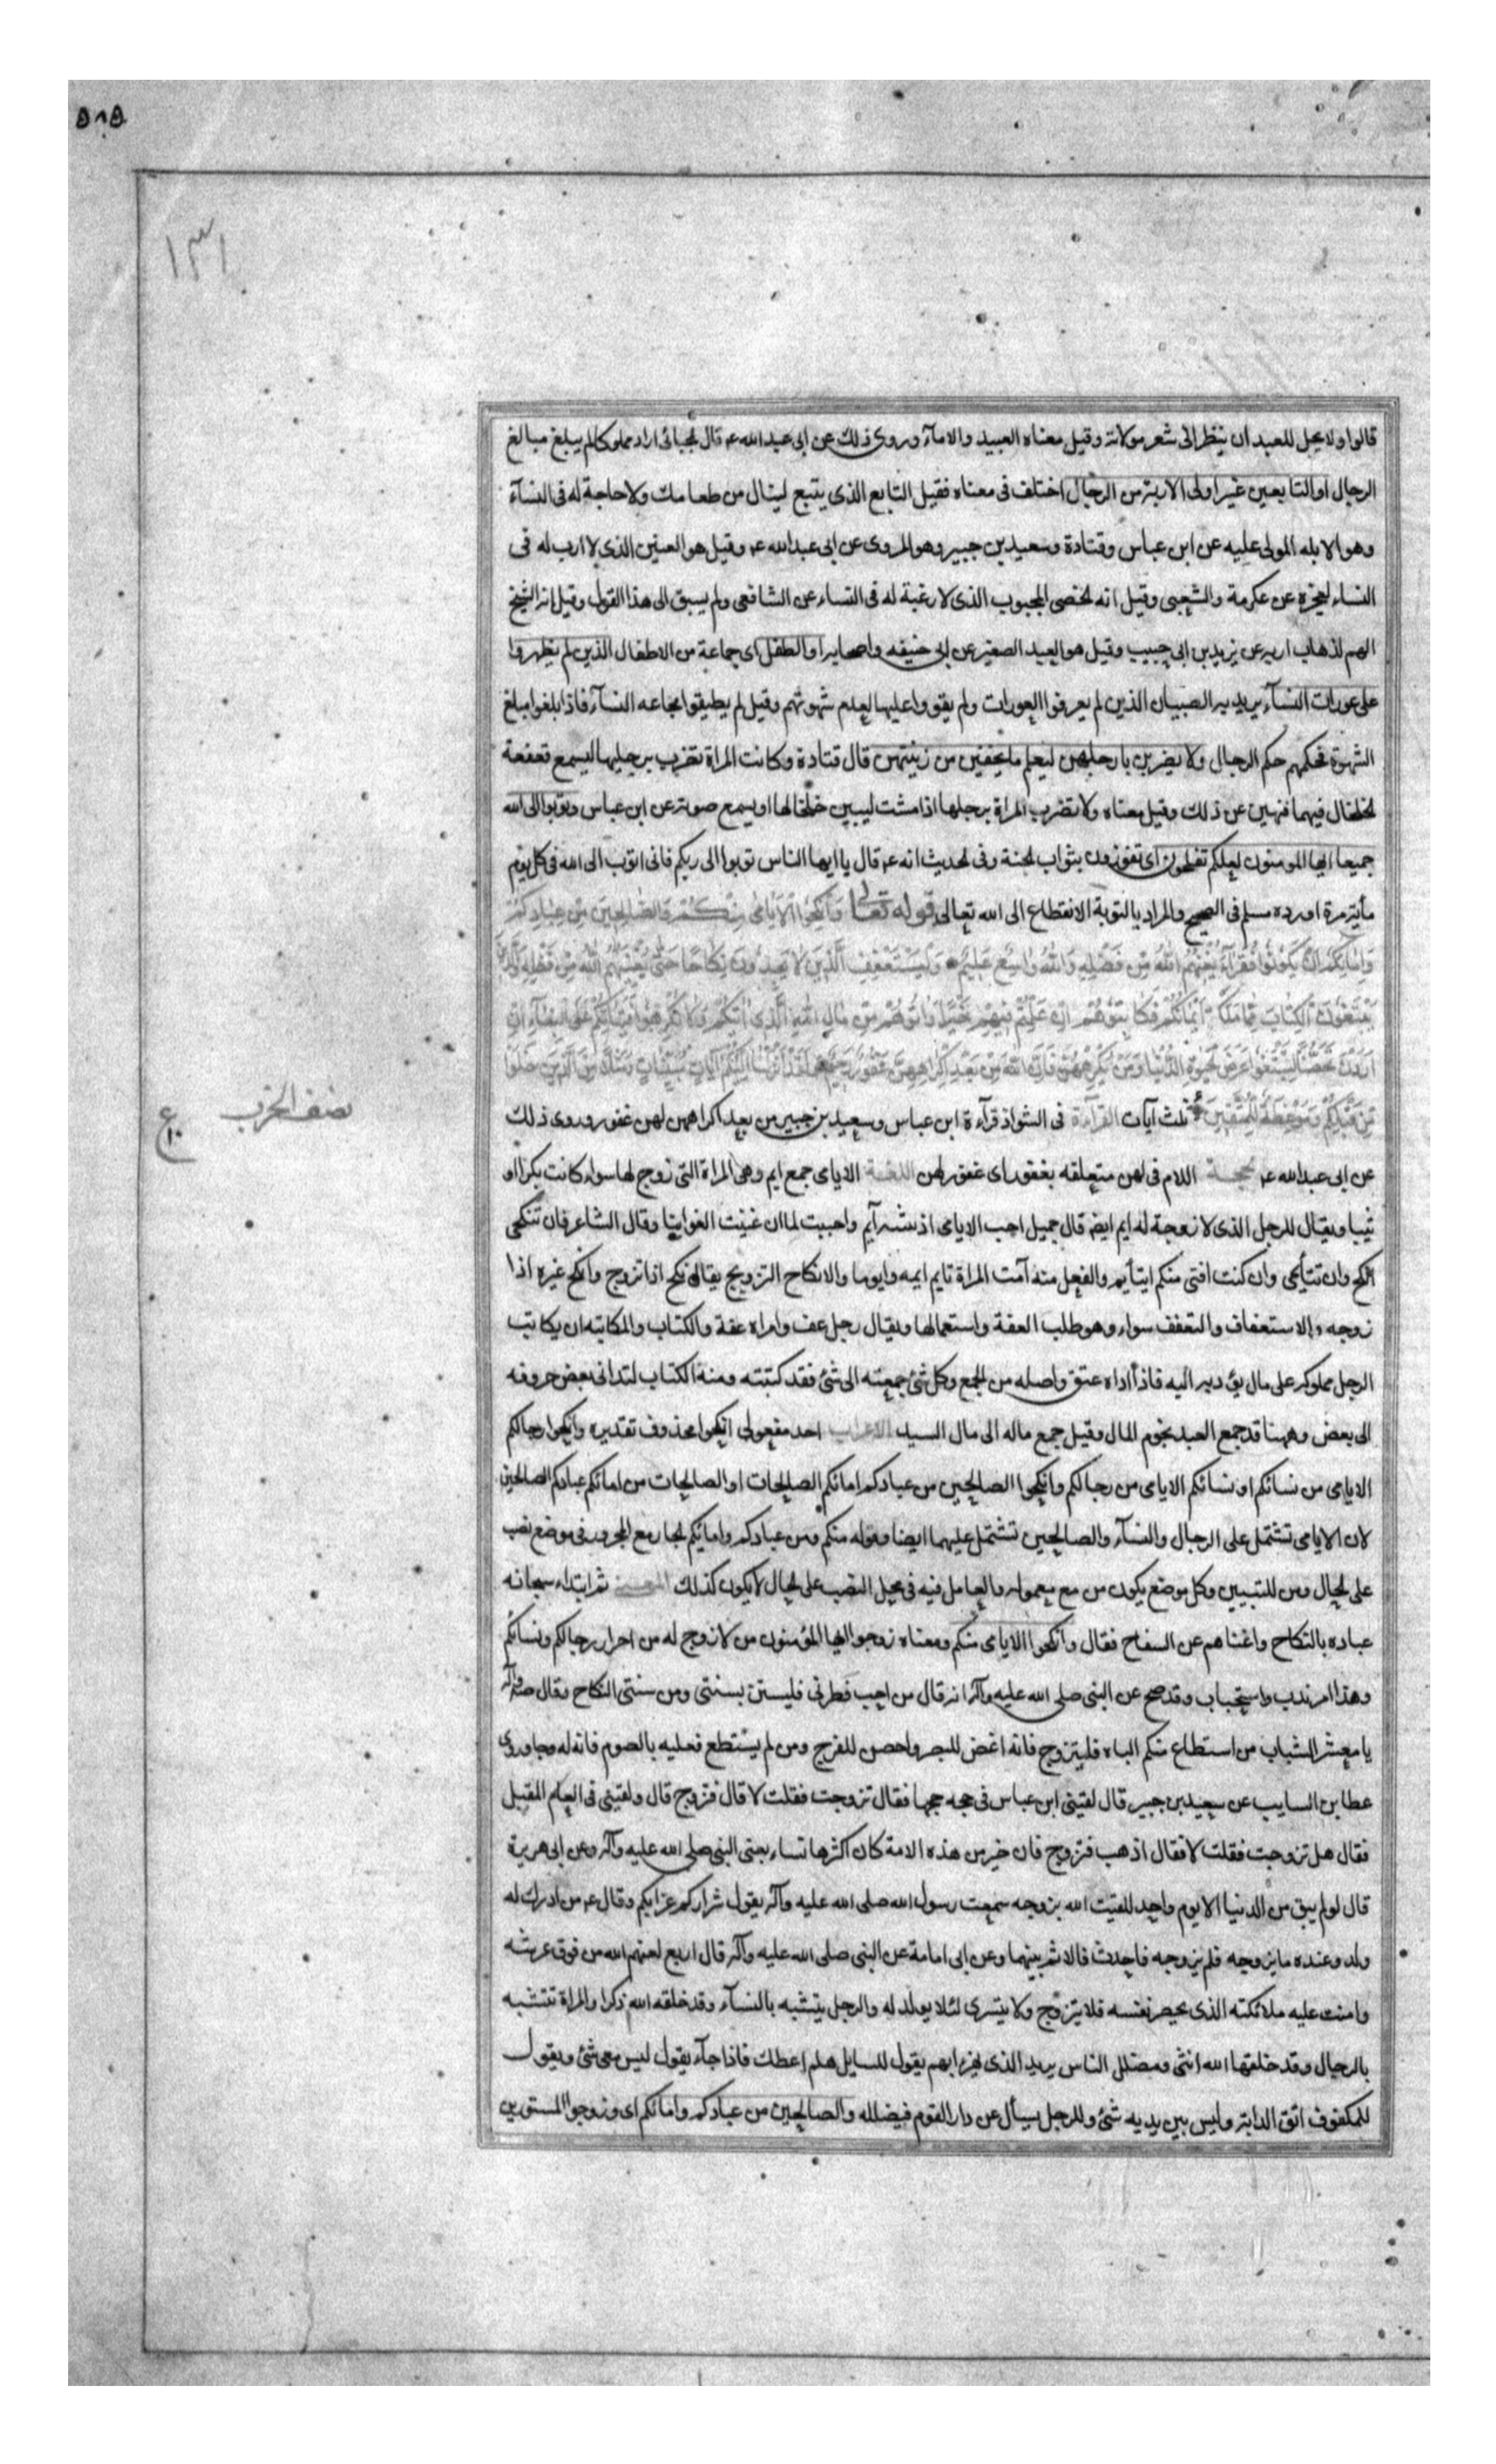 ۵۸۵
۱۳۱
قالوا ولا يحل للعبد ان ينظر الى شعر مولاته وقيل معناه العبيد والامآء وروى ذلك عن ابى عبد الله عم قال الجبائى اراد مملوكا لم يبلغ مبالغ
الرجال او التابعين غير اولى الاربة من الرجال اختلف فى معناه فقيل التابع الذى يتبع لينال من طعامك ولا حاجة له فى النسآء
وهو الابله المولى عليه عن ابن عباس وقتادة وسعيد بن جبير وهو المروى عن ابى عبد الله عم وقيل هو العنين الذى لا ارب له فى
النساء لعجزه عن عكرمة والشعبى وقيل انه الخصى المجبوب الذى لا رغبة له فى النساء عن الشافعى ولم يسبق الى هذا القول وقيل انه الشيخ
الهم لذهاب اربه عن يزيد بن ابى حبيب وقيل هو العبد الصغير عن ابى حنيفه واصحابه او الطفل اى جماعة من الاطفال الذين لم يظهروا
على عورات النسآء يريد به الصبيان الذين لم يعرفوا العورات ولم يقووا عليها لعدم شهوتهم وقيل لم يطيقوا مجامعه النسآء فاذا بلغوا مبلغ
الشهوة فحكمهم حكم الرجال ولا يضربن بارجلهن ليعلم ما يخفين من زينتهن قال قتادة وكانت المراة تضرب برجليها ليسمع قعقعة
الخلخال فيهما فنهين عن ذلك وقيل معناه ولا تضرب المراة برجلها اذا مشت ليبين خلخالها او يسمع صوته عن ابن عباس وتوبوا الى الله
جميعا ايها المومنون لعلكم تفلحون اى تفوزون بثواب الجنة وفى الحديث انه عم قال يا ايها الناس توبوا الى ربكم فانى اتوب الى الله فى كل يوم
مأية مرة اورده مسلم فى الصحيح والمراد بالتوبة الانقطاع الى الله تعالى قوله تعالى وَاَنْكِحُوا الْاَيَامٰى مِنْكُمْ وَالصَّالِحِينَ مِنْ عِبَادِكُمْ
وَاِمَائِكُمْ اِنْ يَكُونُوا فُقَرَآءَ يُغْنِهِمُ اللهُ مِنْ فَضْلِهِ وَاللهُ وَاسِعٌ عَلِيمٌ وَلْيَسْتَعْفِفِ الَّذِينَ لَا يَجِدُونَ نِكَاحًا حَتّٰى يُغْنِيَهُمُ اللهُ مِنْ فَضْلِهِ وَالَّذِينَ
يَبْتَغُونَ الْكِتَابَ مِمَّا مَلَكَتْ اَيْمَانُكُمْ فَكَاتِبُوهُمْ اِنْ عَلِمْتُمْ فِيهِمْ خَيْرًا وَاٰتُوهُمْ مِنْ مَالِ اللهِ الَّذِى اٰتٰيكُمْ وَلَا تُكْرِهُوا فَتَيَاتِكُمْ عَلَى الْبِغَآءِ اِنْ
اَرَدْنَ تَحَصُّنًا لِتَبْتَغُوا عَرَضَ الْحَيٰوةِ الدُّنْيَا وَمَنْ يُكْرِهْهُنَّ فَاِنَّ اللهَ مِنْ بَعْدِ اِكْرَاهِهِنَّ غَفُورٌ رَحِيمٌ وَلَقَدْ اَنْزَلْنَا اِلَيْكُمْ اٰيَاتٍ مُبَيِّنَاتٍ وَمَثَلًا مِنَ الَّذِينَ خَلَوْا
مِنْ قَبْلِكُمْ وَمَوْعِظَةً لِلْمُتَّقِينَ ثلث آيات القرآءة فى الشواذ قرآءة ابن عباس وسعيد بن جبير من بعد اكراههن لهن غفور وروى ذلك
نصف الحزب
ع
عن ابى عبد الله عم الحجة اللام فى لهن متعلقه بغفور اى غفور لهن اللغة الايامى جمع ايم وهى المراة التى لا زوج لها سواء كانت بكرا او
ثيبا ويقال للرجل الذى لا زوجة له ايم ايضا قال جميل احب الايامى اذ بثينه ايم واحببت لما ان غنيت الغوانيا وقال الشاعر فان تنكحى
انكح وان تتأيمى وان كنت افتى منكم اتأيم والفعل منه آمت المراة تايم ايمه وايوما والانكاح التزويج يقال نكح اذا تزوج وانكح غيره اذا
زوجه والاستعفاف والتعفف سواء وهو طلب العفة واستعمالها ويقال رجل عف وامراه عفة والكتاب والمكاتبه ان يكاتب
الرجل مملوكه على مال يؤديه اليه فاذا اداه عتق واصله من الجمع وكل شئ جمعته الى شئ فقد كتبته ومنه الكتاب لتدانى بعض حروفه
الى بعض وههنا قد جمع العبد نجوم المال وقيل جمع ماله الى مال السيد الاعراب احد مفعولى انكحوا محذوف تقديره وانكحوا رجالكم
الايامى من نسائكم او نسائكم الايامى من رجالكم وانكحوا الصالحين من عبادكم امائكم الصالحات او الصالحات من امائكم عبادكم الصالحين
لان الايامى تشتمل على الرجال والنسآء والصالحين تشتمل عليهما ايضا وقوله منكم ومن عبادكم وامائكم الجار مع المجرور فى موضع نصب
على الحال ومن للتبيين وكل موضع يكون من مع معموله والعامل فيه فى محل النصب على الحال لا يكون كذلك المعنى ثم ابتداء سبحانه
عباده بالنكاح واغناهم عن السفاح فقال وانكحوا الايامى منكم ومعناه زوجوا ايها المؤمنون من لا زوج له من احرار رجالكم ونسائكم
وهذا امر ندب واستحباب وقد صح عن النبى صلى الله عليه وآله انه قال من احب فطرتى فليستن بسنتى ومن سنتى النكاح وقال ص وآله
يا معشر الشباب من استطاع منكم الباه فليتزوج فانه اغض للبصر واحصن للفرج ومن لم يستطع فعليه بالصوم فانه له وجا وروى
عطا بن السايب عن سعيد بن جبير قال لقينى ابن عباس فى حجه حجها فقال تزوجت فقلت لا قال فتزوج قال ولقينى فى العام المقبل
فقال هل تزوجت فقلت لا فقال اذهب فتزوج فان خير من هذه الامة كان اكثرها نساء يعنى النبى صلى الله عليه وآله وعن ابى هريرة
قال لو لم يبق من الدنيا الا يوم واحد للقيت الله بزوجه سمعت رسول الله صلى الله عليه وآله يقول شراركم عزابكم وقال عم من ادرك له
ولد وعنده ما يزوجه فلم يزوجه فاحدث فالاثم بينهما وعن ابى امامة عن النبى صلى الله عليه وآله قال اربع لعنهم الله من فوق عرشه
وامنت عليه ملائكته الذى يحصر نفسه فلا يتزوج ولا يتسرى لئلا يولد له والرجل يتشبه بالنسآء وقد خلقه الله ذكرا والمراة تتشبه
بالرجال وقد خلقها الله انثى ومضلل الناس يريد الذى يهزء بهم يقول للسايل هلم اعطك فاذا جآء يقول ليس معى شئ ويقول
للمكفوف اتق الدابة وليس بين يديه شئ وللرجل يسأل عن دار القوم فيضلله والصالحين من عبادكم وامائكم اى وزوجوا المستورين